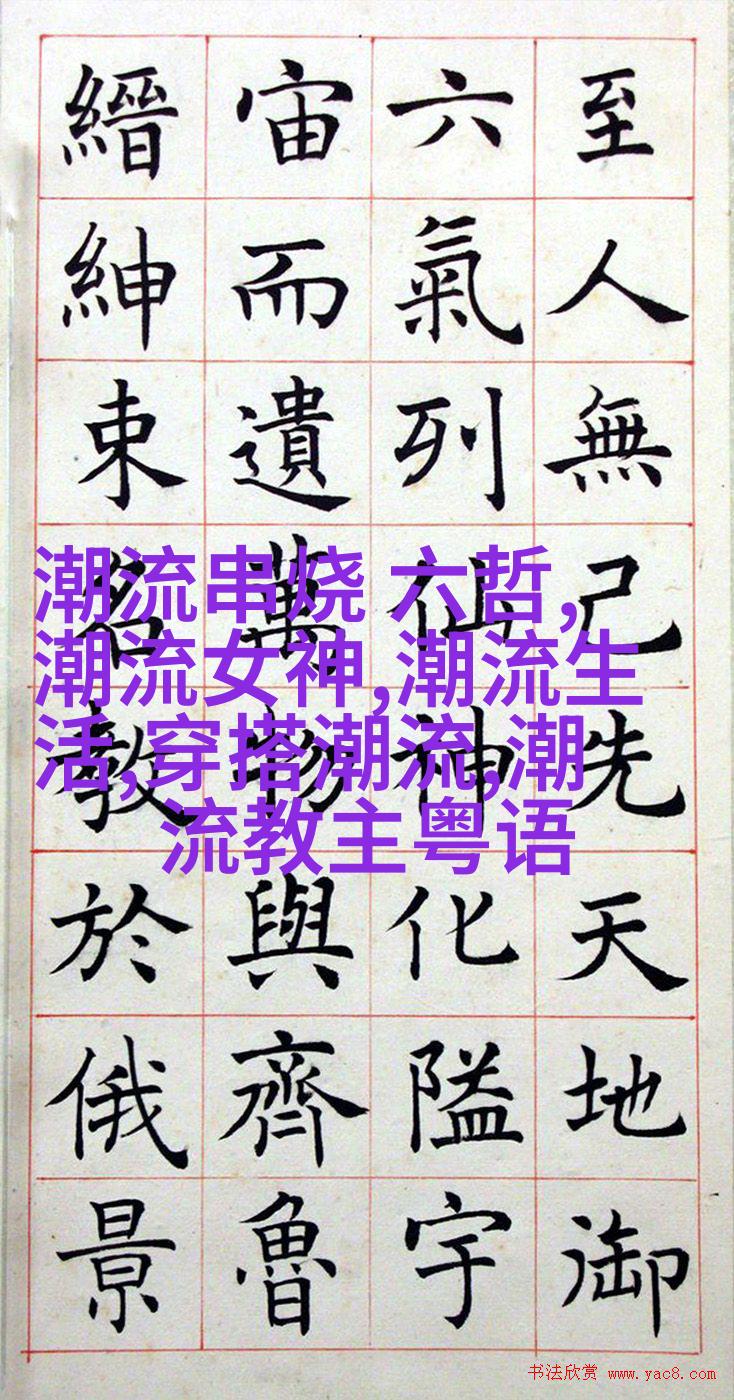 至人無己先天地御
六氣列仙神化隘宇
宙而遺萬物與齊魯
縉紳束名教於俄景
潮流串烧 六哲,
潮流女神,潮流生
活,穿搭潮流,潮
流教主粤语
书法欣赏 www.yac8.com